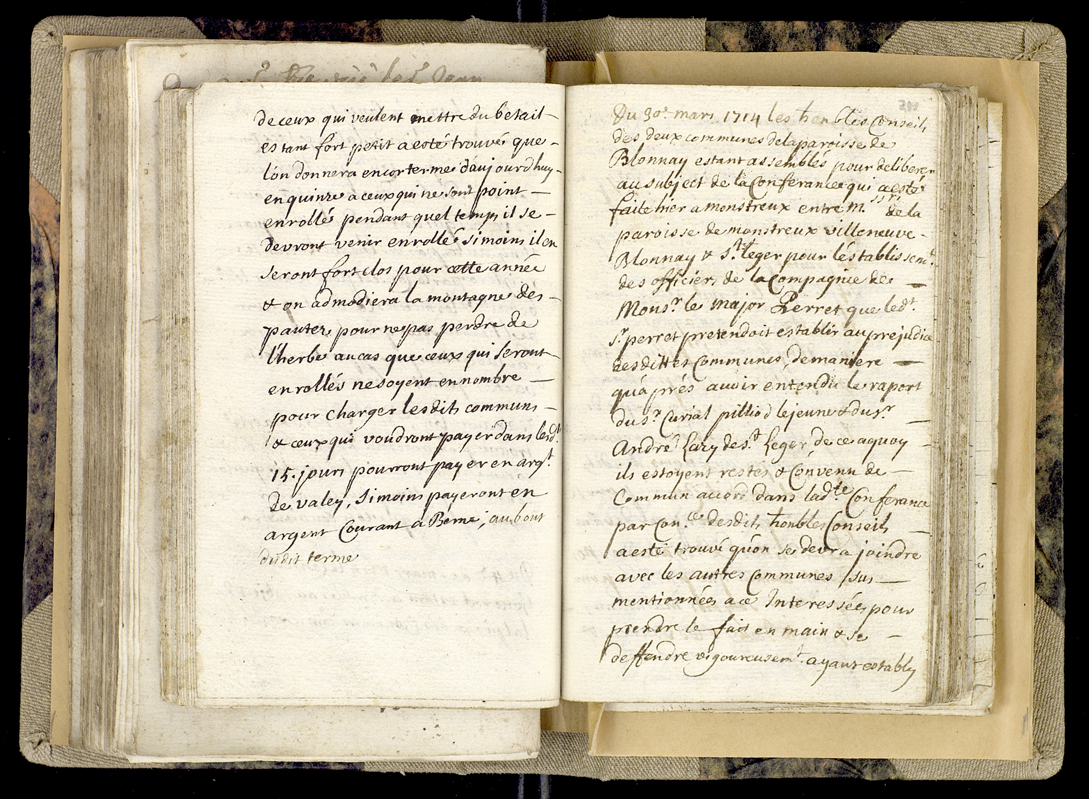 de ceux qui veulent mettre du betail
estant fort petit a esté trouvé que
lón donnera encor terme daujourdhuy
en quinze a ceux qui ne sont point
enrollés pendant quel temps il se
devront venir enrollé si moins il en
seront fort clos pour cette année
& on admodiera la montagne des
pautex pour ne pas perdre de
l'herbe au cas que ceux qui seront
enrollés ne soyent en nombre
pour charger lesdits communs
& ceux qui voudront payer dans lesd.t
15. jours pourront payer en arg.t
de valey, si moins payeront en
argent Courant a Berne, au bout
dudit terme
201
Du 30.e mars 1714 les honbles Conseils
des deux communes de la paroisse de
Blonnay estant assemblés pour deliberer
au subject de la Conferance qui a esté
faite hier a monstreux entre m.ssrs de la
paroisse de monstreux villeneuve
Blonnay & s.t leger pour léstablissem.t
des officiers de la Compagnie de
Mons.r le major Perret que led.t
s.r perret pretendoit establir au prejudice
desdittes Communes, de maniere
quáprés avoir entendu le raport
du s.r Curial pilliod le jeune & du s.r
André Lazy de s.t Leger, de ce a quoy
ils estoyent restés & Convenu de
Commun accord dans lad.te Conferance
par Con.ce desdits honbles Conseils
a esté trouvé quón se devra joindre
avec les autres Communes sus
mentionnées a ce Interessées pour
prendre le fait en main & se
deffendre vigoureusem.t ayant establis